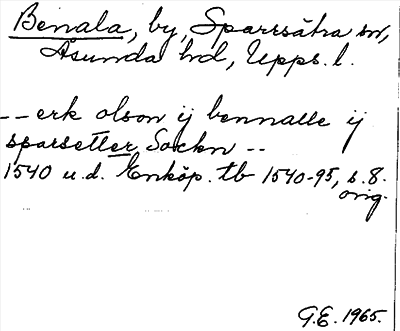 Benala, by, Sparrsätra sn,
Åsunda hd, Upps. l.
-- erk olson ij bennalle ij
sparsetter Sockn --
1540 u.d. Enköp. tb 1540-95, s. 8.
orig.
G.E. 1965.